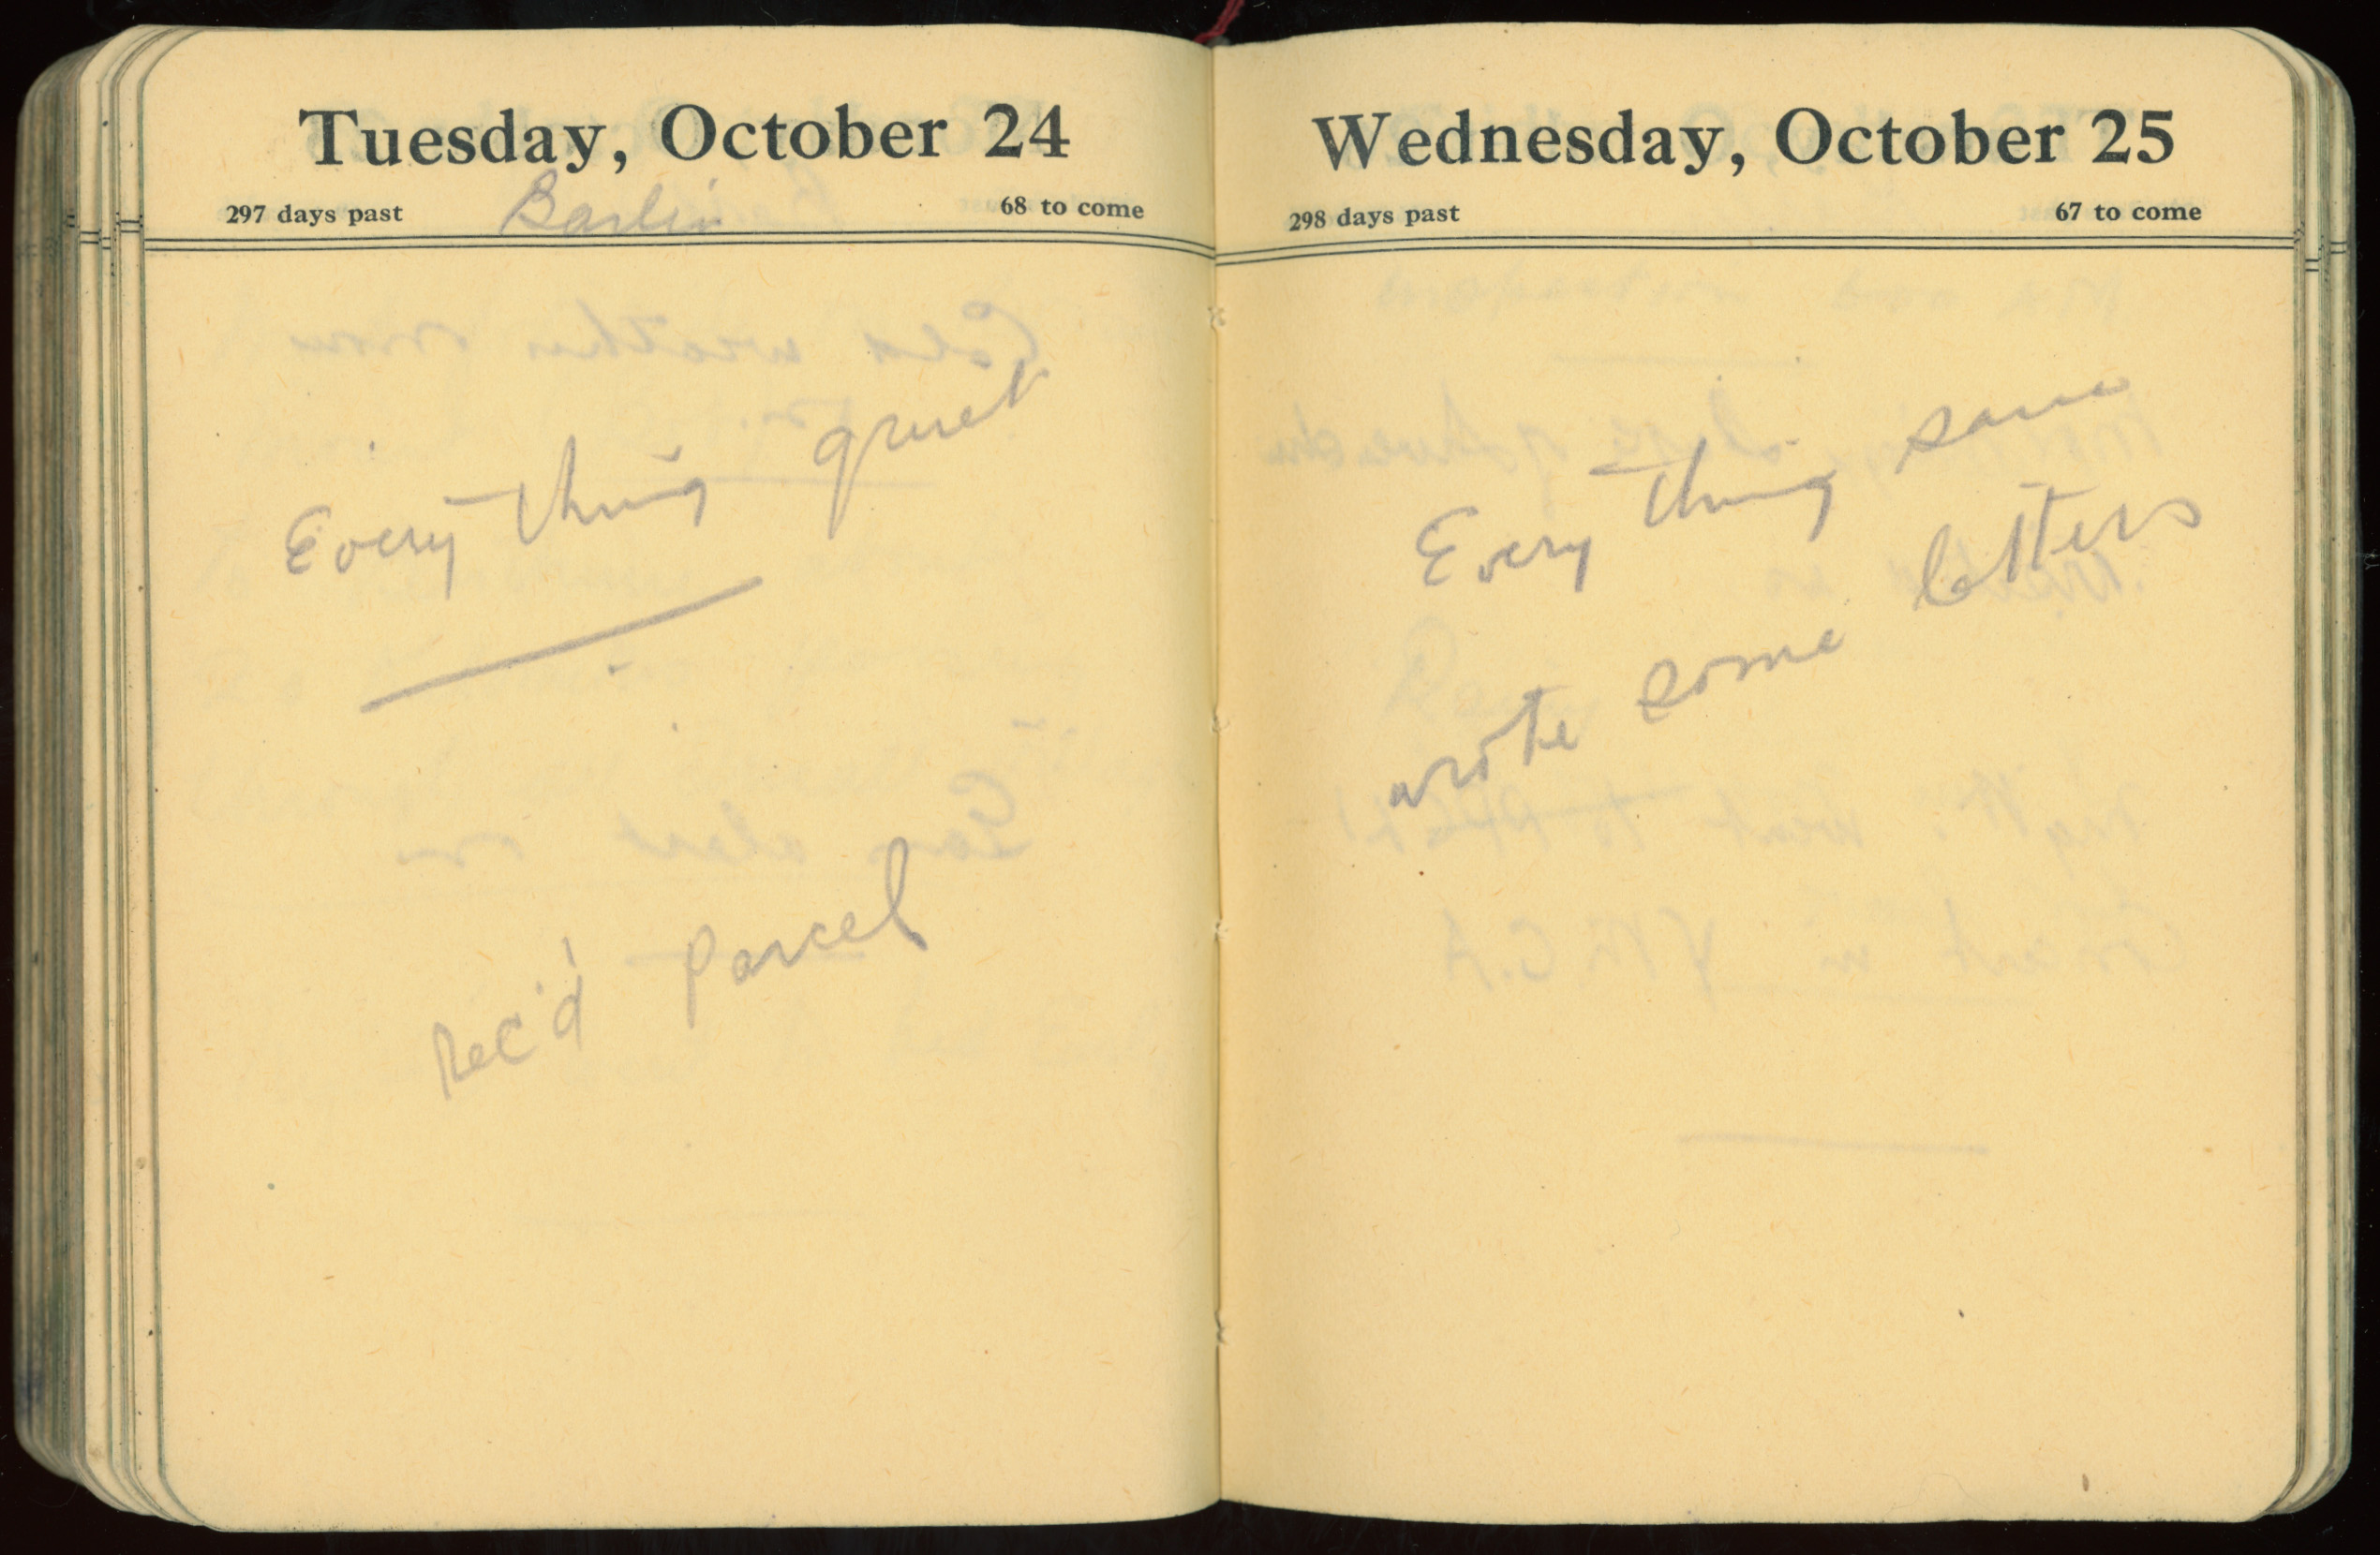 Tuesday, October 24
297 days past Barlin 68 to come
Every thing quiet
Rec'd parcel
Wednesday, October 25
298 days past 67 to come
Every thing same
wrote some letters